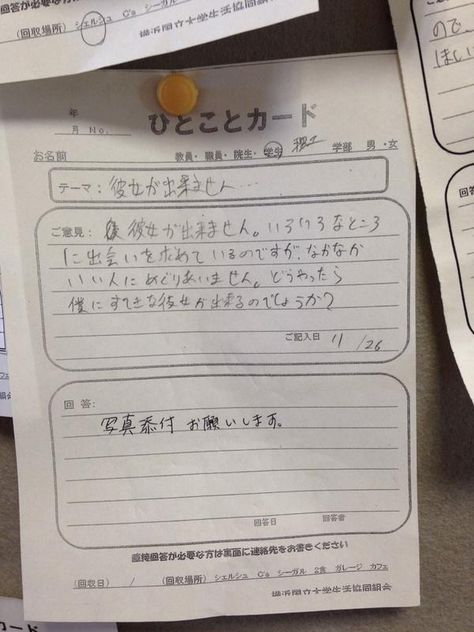 回答が必要な方は裏面に
(回収場所) シェルシュ C's シーガル
横浜国立大学生活協同組合
ので、
ほしい
回答
年
月 No.
ひとことカード
お名前 教員・職員・院生・学生 理工 学部 男・女
テーマ: 彼女が出来ません…
ご意見: 僕 彼女が出来ません。いろいろなところ
に出会いを求めているのですが、なかなか
いい人にめぐりあいません。どうやったら
僕にすてきな彼女が出来るのでしょうか?
ご記入日 11/26
回答:
写真添付 お願いします。
回答日 回答者
直接回答が必要な方は裏面に連絡先をお書きください
(回収日) / (回収場所) シェルシュ C's シーガル 2食 ガレージ カフェ
横浜国立大学生活協同組合